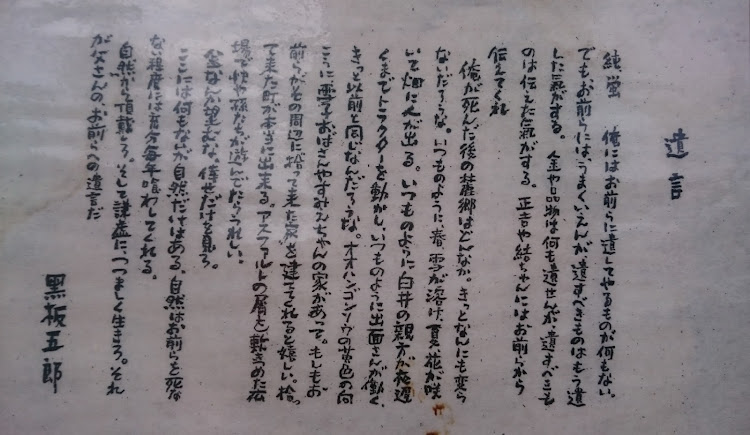 遺言
純、蛍　俺にはお前らに遺してやるものが何もない。
でも、お前らには、うまくいえんが遺すべきものはもう遺
した気がする。金や品物は何も遺せんが、遺すべきも
のは伝えた気がする。正吉や結ちゃんにはお前らから
伝えてくれ
俺が死んだ後の麓郷はどんなか。きっとなんにも変ら
ないだろうな。いつものように春、雪が溶け、夏、花が咲
いて畑に人が出る。いつものように白井の親方が夜遅
くまでトラクターを動かし、いつものように出面さんが働く。
きっと以前と同じなんだろうな。オオハンゴンソウの黄色の向
こうに、雪子おばさんやすみえちゃんの家があって。もしもお
前らがその周辺に拾って来た家を建ててくれると嬉しい。拾っ
て来た町が本当に出来る。アスファルトの屑を敷きつめた広
場で快や孫たちが遊んでたらうれしい。
金なんか望むな。倖せだけを見ろ。
ここには何もないが自然だけはある。自然はお前らを死な
ない程度には充分毎年喰わしてくれる。
自然から頂戴しろ。そして謙虚に、つつましく生きろ。それ
が父さんの、お前らへの遺言だ
黒板五郎